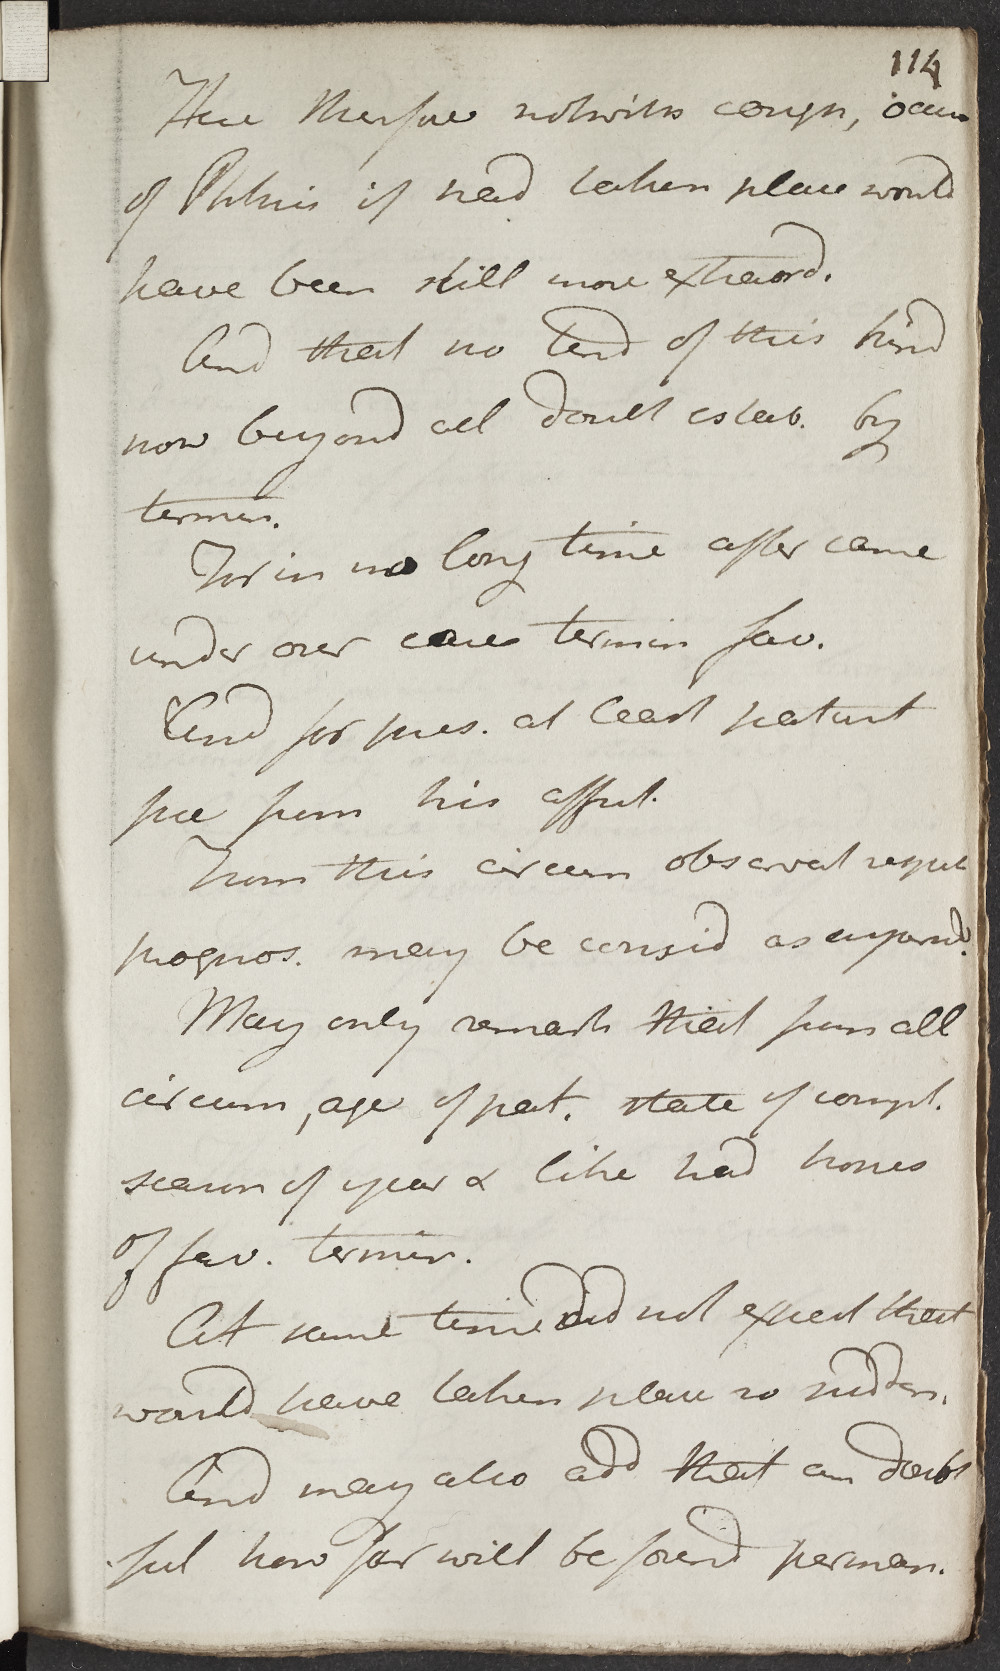 114
Here therefore notwiths cough, occurr
of Phthisis if had taken place would
have been still more extraord.
And that no tend of this kind
now beyond all doubt estab. by
termin.
For in no long time after came
under over care termin fav.
And for pres. at least patient
free from his afflict.
From this circum observat respect
prognos. may be consid as unfound.
May only remark that from all
circum, age of pat. state of compl.
season of year & like had hopes
of fav. termin.
At same time did not expect that
would have taken place so sudden.
And may also add that am doubt
ful how far will be found perman.